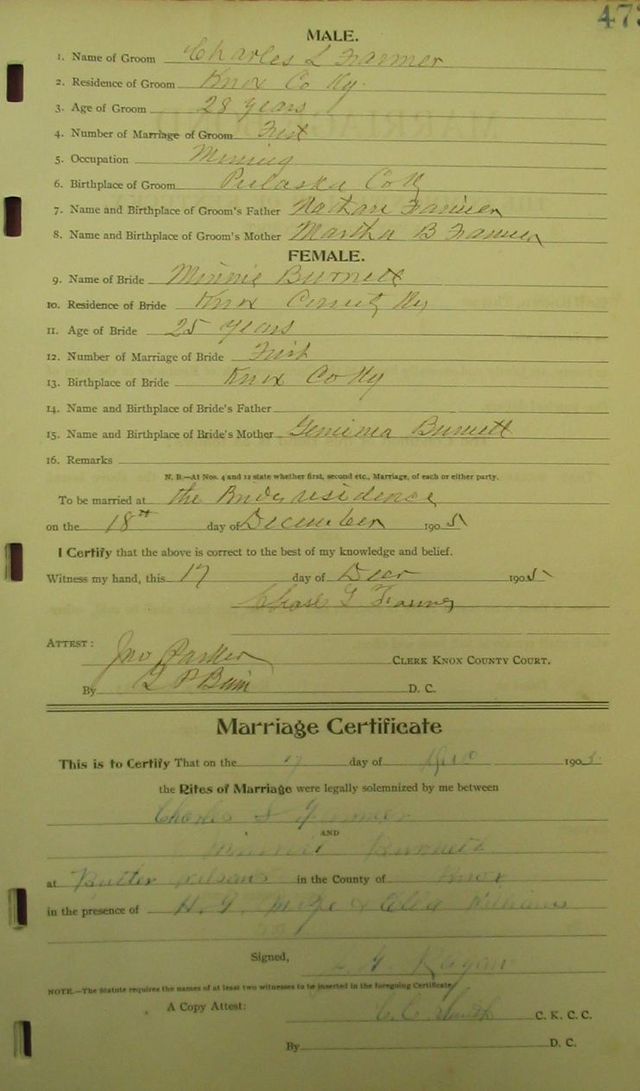 473
MALE.
1. Name of Groom Charles L Farmer
2. Residence of Groom Knox Co Ky.
3. Age of Groom 28 years
4. Number of Marriage of Groom First
5. Occupation Mining
6. Birthplace of Groom Pulaska Co Ky
7. Name and Birthplace of Groom's Father Nathan Farmer
8. Name and Birthplace of Groom's Mother Martha B Farmer
FEMALE.
9. Name of Bride Minnie Burnett
10. Residence of Bride Knox County Ky
11. Age of Bride 25 years
12. Number of Marriage of Bride First
13. Birthplace of Bride Knox Co Ky
14. Name and Birthplace of Bride's Father
15. Name and Birthplace of Bride's Mother Gemima Burnett
16. Remarks
N. B.—At Nos. 4 and 12 state whether first, second etc., Marriage, of each or either party.
To be married at the Brides residence
on the 18th day of December 1905
I Certify that the above is correct to the best of my knowledge and belief.
Witness my hand, this 17 day of Decr 1905
Farmer
ATTEST:
Jno Parker CLERK KNOX COUNTY COURT.
By D. C.
Marriage Certificate
This is to Certify That on the day of 190
the Rites of Marriage were legally solemnized by me between
Charles Farmer
AND
Minnie Burnett
at Butter in the County of Knox
in the presence of H. G. Williams
Signed,
NOTE.—The Statute requires the names of at least two witnesses to be inserted in the foregoing Certificate
A Copy Attest: C. K. C. C.
By D. C.